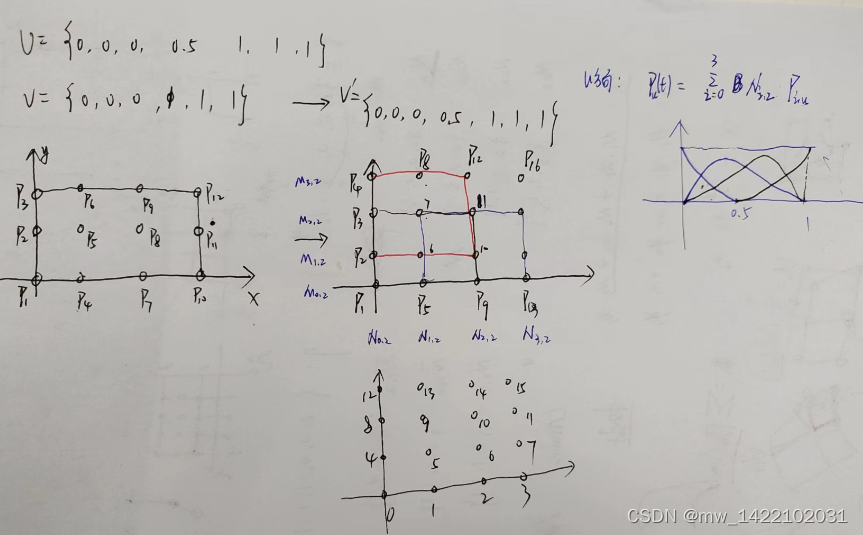 U = {0, 0, 0, 0.5 1, 1, 1}
V = {0, 0, 0, 1, 1, 1} → V' = {0, 0, 0, 0.5, 1, 1, 1}
U方向: P_u(t) = Σ_{i=0}^{3} N_{i,2} P_{i,u}
0.5 1
y
P3 P6 P9 P12
P2 P5 P8 P11
P1 P4 P7 P10 x
M3,2 P4 P8 P12 P16
M2,2 P3 7 11
M1,2 P2 6 10
M0,2 P1 P5 P9 P13
N0,2 N1,2 N2,2 N3,2
12 13 14 15
8 9 10 11
4 5 6 7
0 1 2 3
CSDN @mw_1422102031